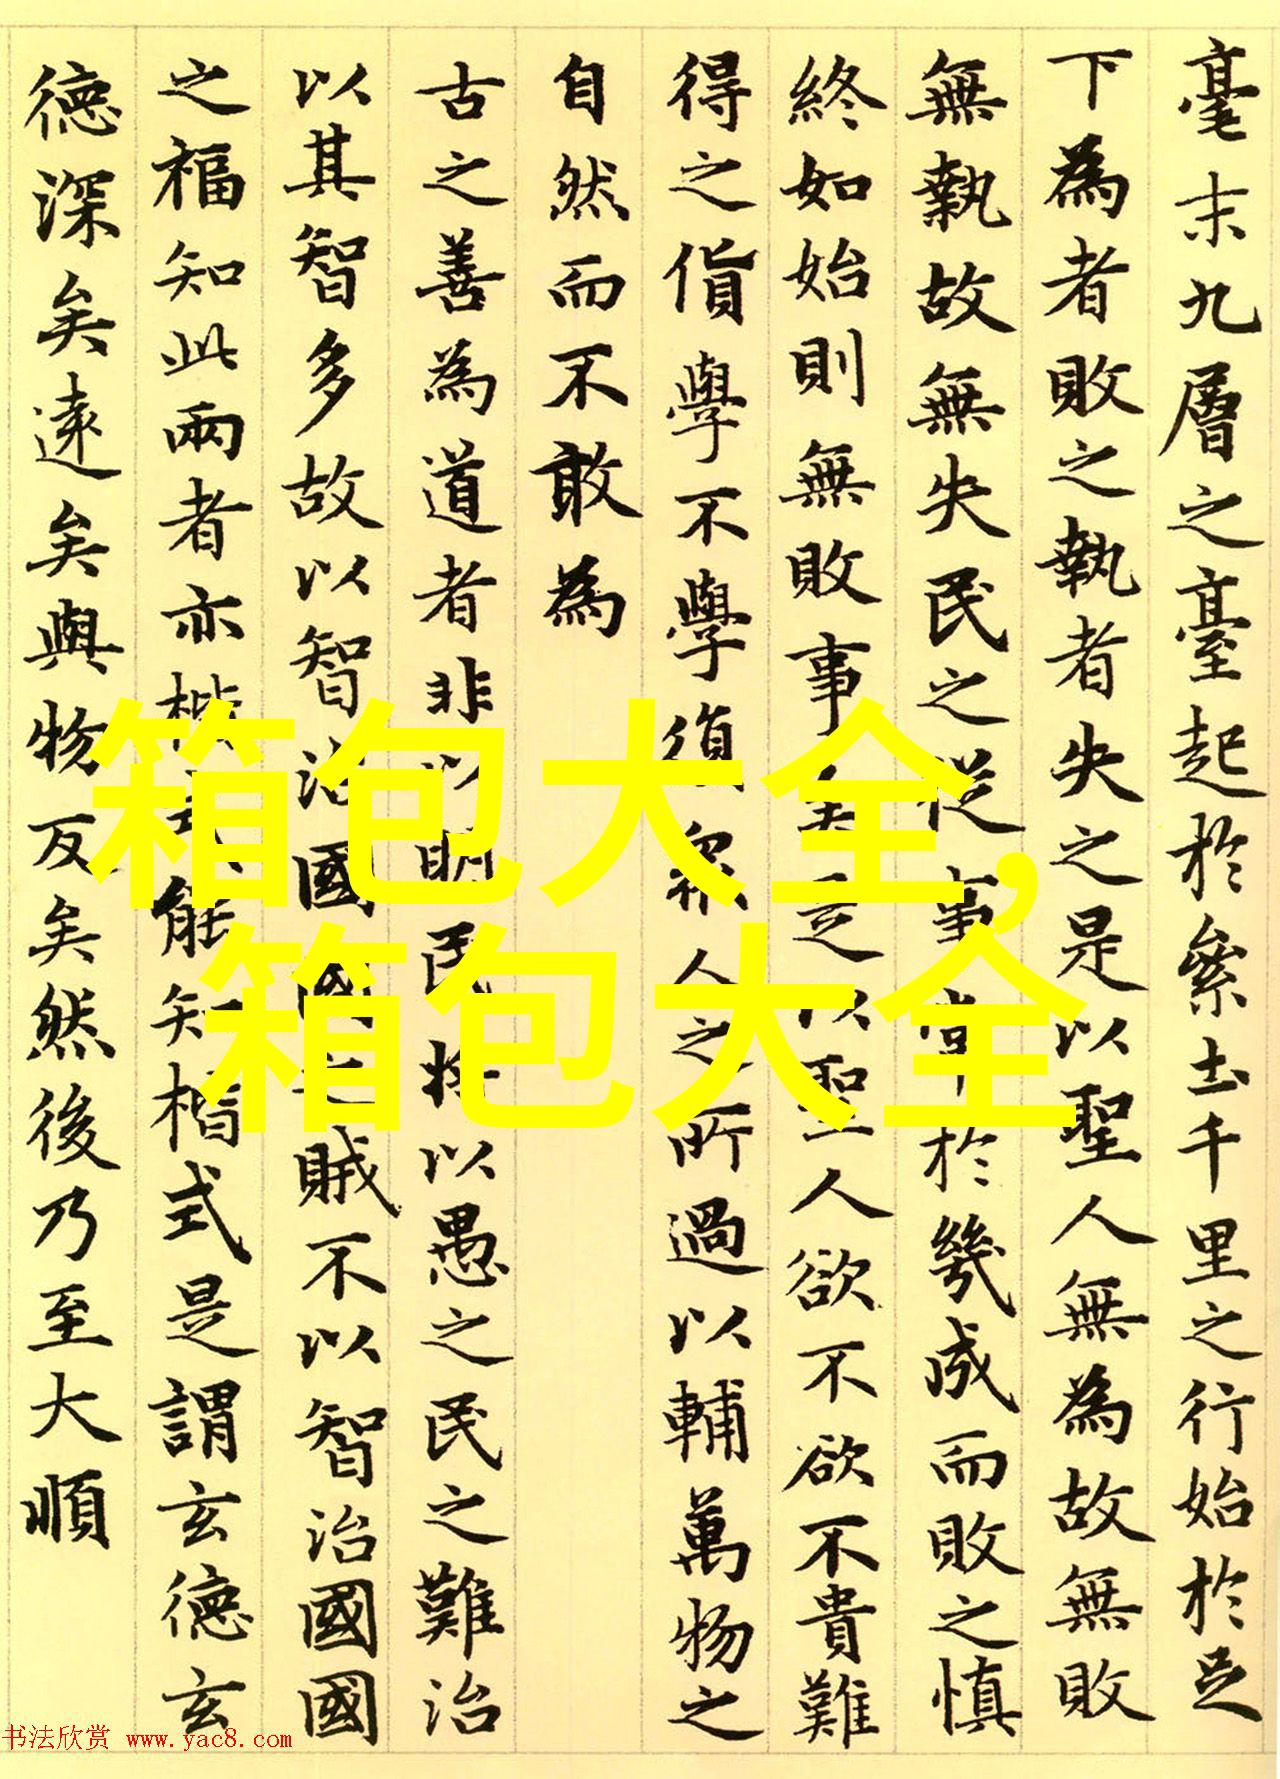 毫末九層之臺起於絫土千里之行始於足
下為者敗之執者失之是以聖人無為故無敗
無執故無失民之從事常於幾成而敗之慎
終如始則無敗事矣是以聖人欲不欲不貴難
得之貨學不學復眾人之所過以輔萬物之
自然而不敢為
古之善為道者非以明民將以愚之民之難治
以其智多故以智治國國之賊不以智治國國
之福知此兩者亦楷式能知楷式是謂玄德玄
德深矣遠矣與物反矣然後乃至大順
箱包大全,
箱包大全
书法欣赏 www.yac8.com